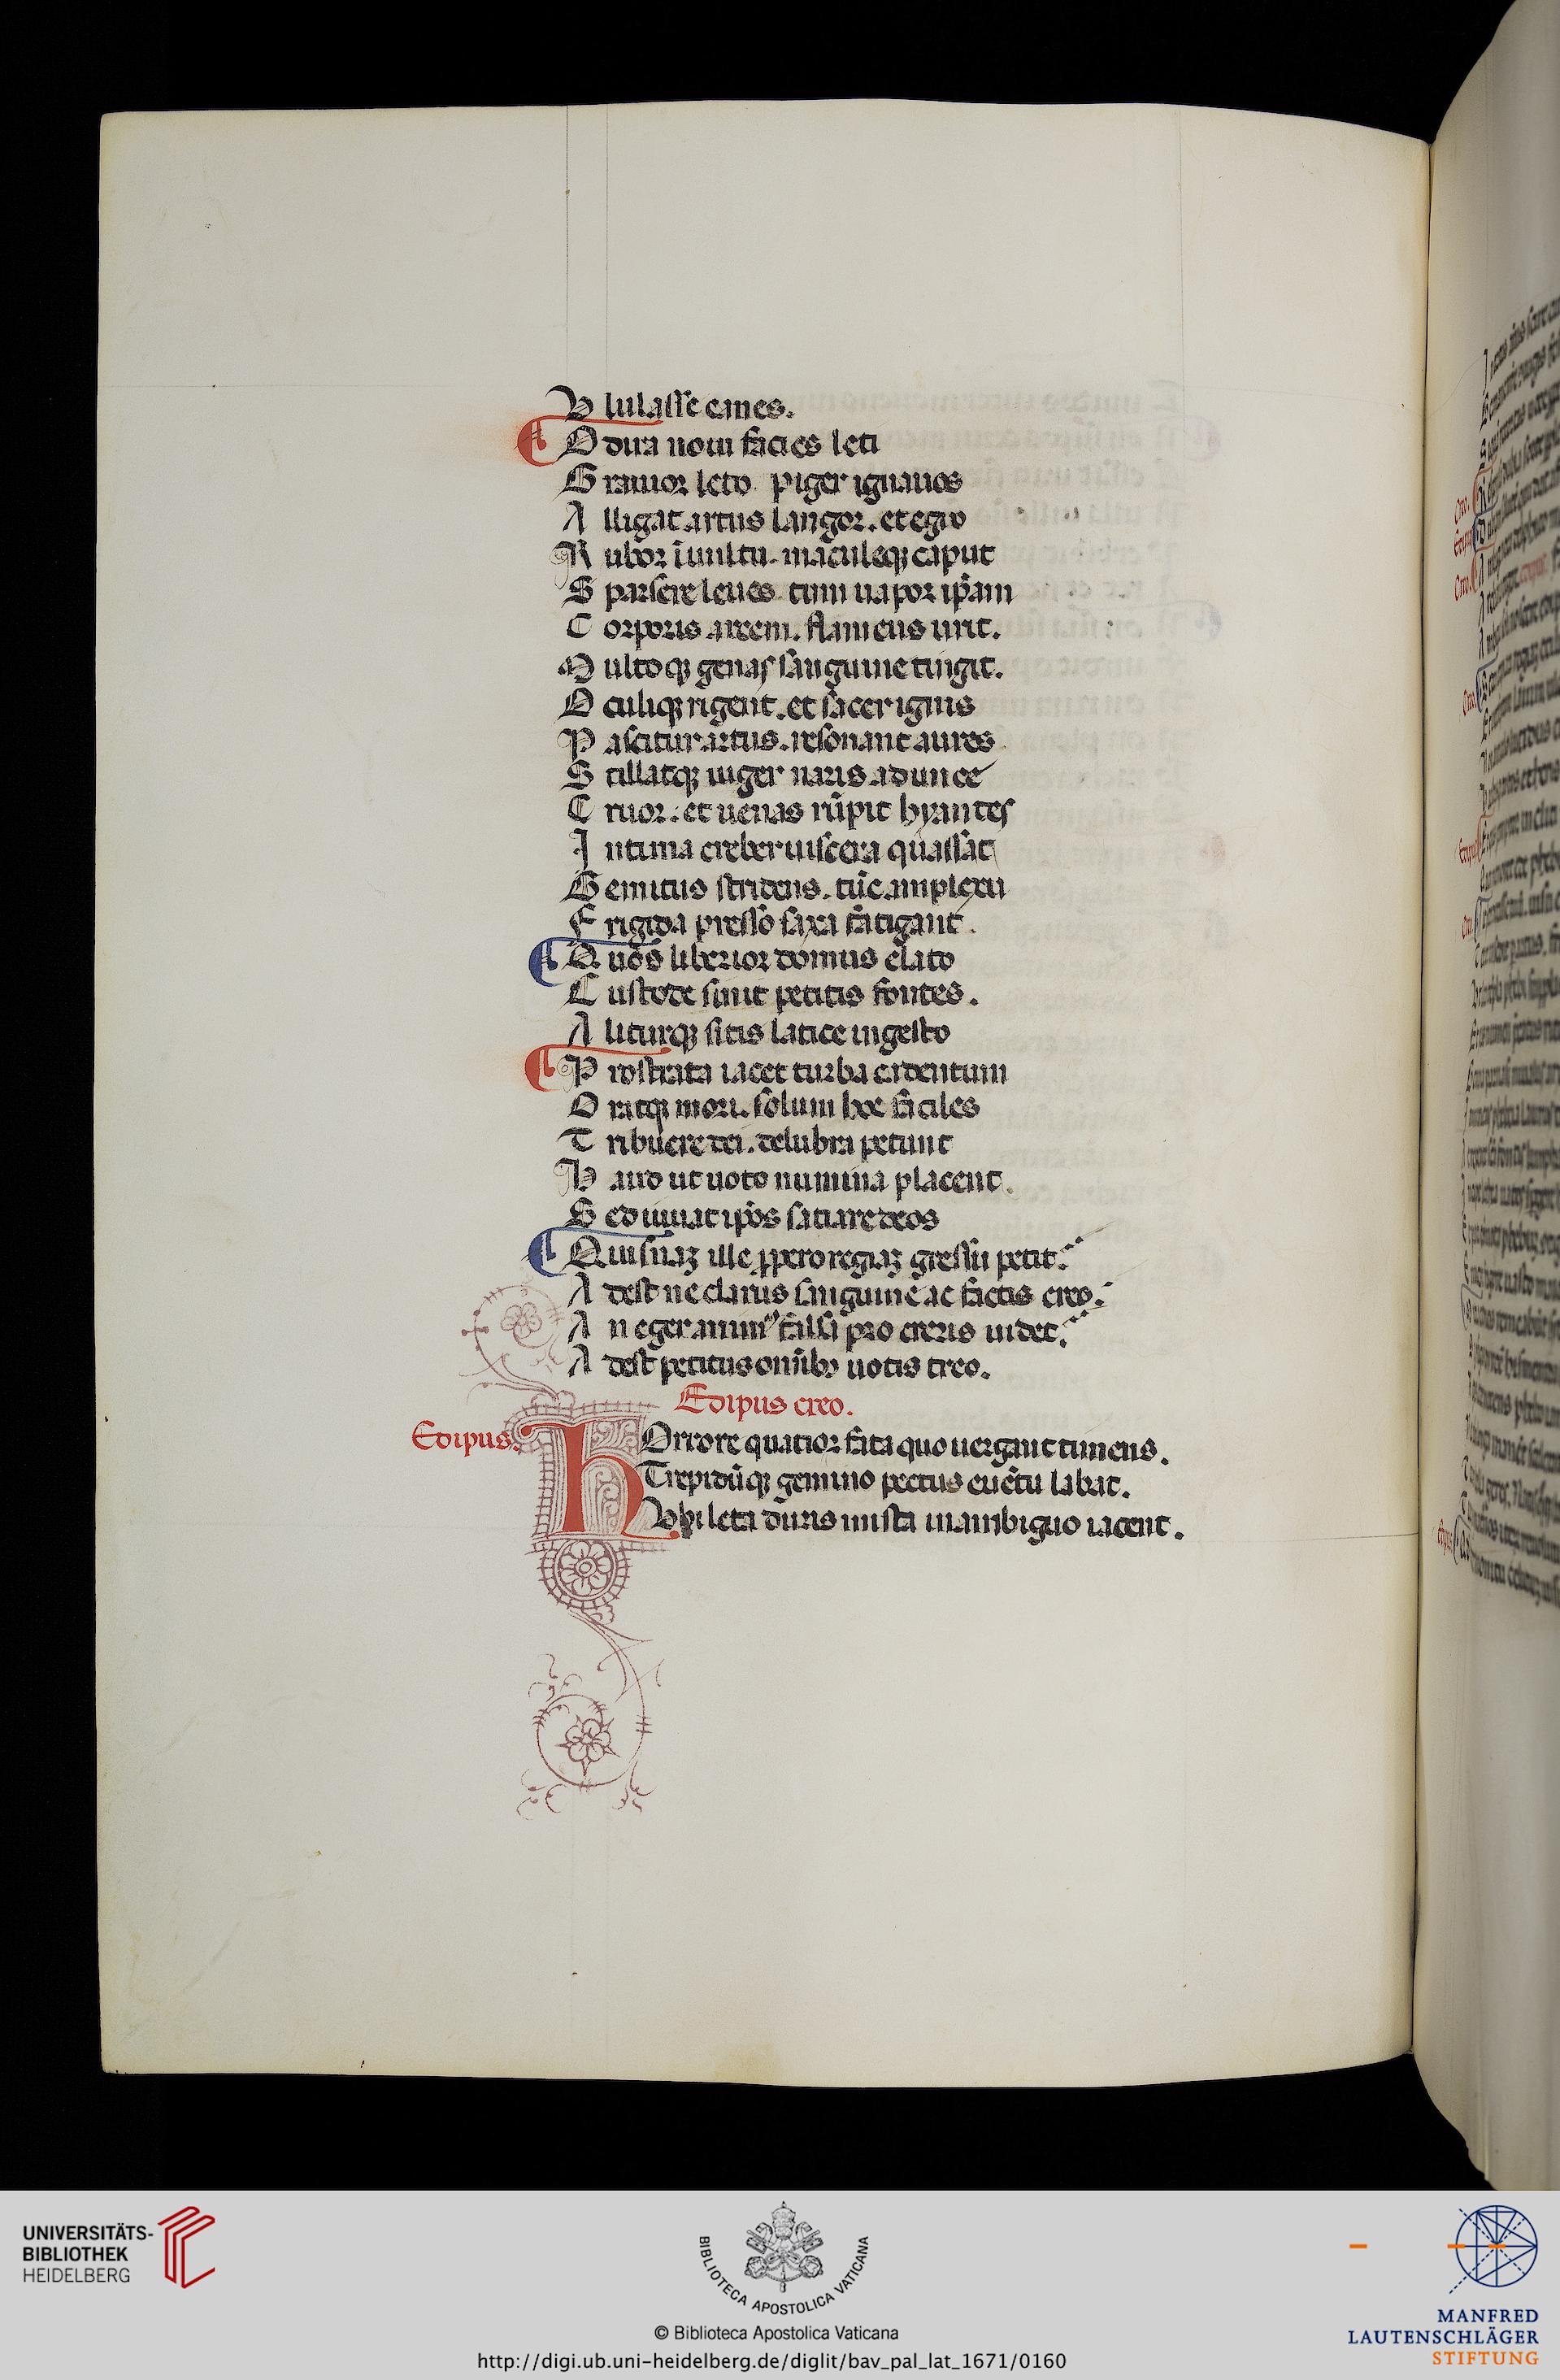 V lulasse canes.
O dira noui facies leti
G rauior leto. piger ignauos
A lligat artus langor. et egro
R ubor ī uultu. maculeqꝫ caput
S parsere leues. tum uapor ip̄am
C orporis arcem. flameus urit.
M ultoqꝫ genas sanguine tingit.
O culiqꝫ rigent. et sacer ignis
P ascitur artus. resonant aures.
S tillatqꝫ niger naris adunce
C ruor. et uenas rūpit hyantes
I ntima creber uiscera quassat
G emitus stridens. tūc amplexu
F rigida presso saxa fatigant.
Q uos liberior domus elato
C ustode sinit petitis fontes.
A liturqꝫ sitis latice ingesto
P rostrata iacet turba ardentum
O ratqꝫ mori. solum hoc faciles
T ribuere dei. delubra petunt
H aud ut uoto numina placent.
S ed iuuat ip̄os satiare deos
Q uisnaꝫ ille ꝓpero regiaꝫ gressu petit.
A dest ne clarus sanguine ac factis creo.
A n eger animꝰ falsa pro ueris uidet.
A dest petitus omībꝫ uotis creo.
Edipus creo.
Edipus.
HOrrore quatior fata quo uergant timens.
Trepidūqꝫ gemino pectus euētu labat.
Vbi leta duris mista in ambiguo iacent.
UNIVERSITÄTS-
BIBLIOTHEK
HEIDELBERG
BIBLIOTECA APOSTOLICA VATICANA
© Biblioteca Apostolica Vaticana
http://digi.ub.uni-heidelberg.de/diglit/bav_pal_lat_1671/0160
MANFRED
LAUTENSCHLÄGER
STIFTUNG